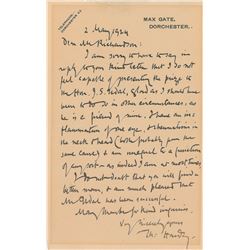 MAX GATE,
DORCHESTER.
2 May 1924
Dear Mr Richardson:
I am sorry to have to say in
reply to your kind letter that I do not
feel capable of presenting the prize to
the Hon. , glad as I should have
been to do so in other circumstances, as
he is a friend of mine. I have an in-
flammation of one eye, & rheumatism in
the neck & head (both probably from the
same cause) & am unequal to a function
of any sort — as indeed I am at most times.
I do not doubt that you will find a
better man, & am much pleased that
Mr has been successful.
Many thanks for kind inquiries.
Very sincerely yours
Th. Hardy.